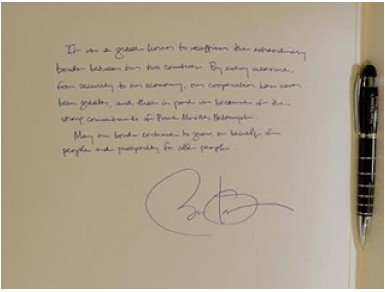 It is a great honor to reaffirm the extraordinary
bonds between our two countries. By every measure,
from security to our economy, our cooperation has never
been greater, and that in part is because of the
strong commitments of Prime Minister
May our bonds continue to grow, on behalf of our
people and prosperity for all people.